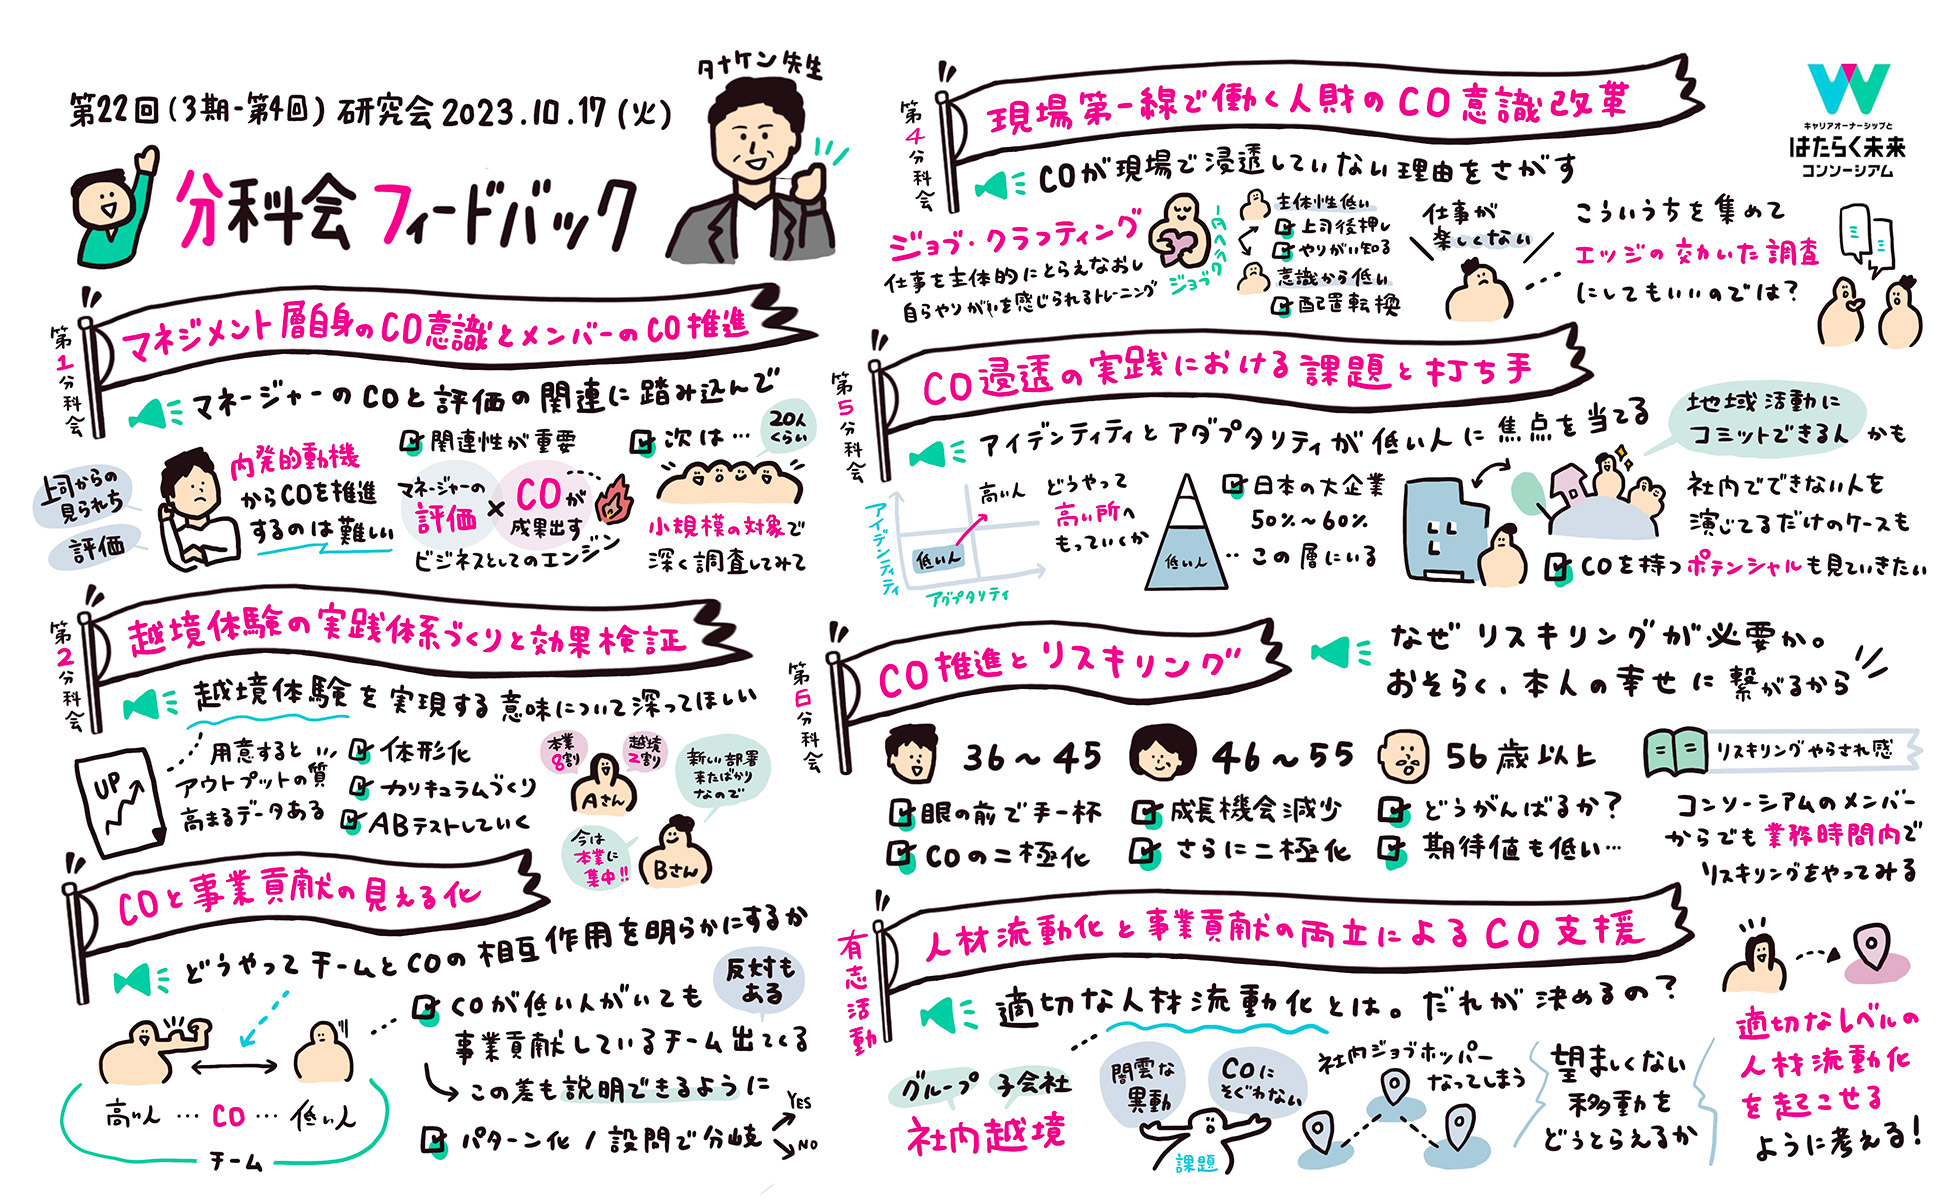 第22回(3期-第4回) 研究会 2023.10.17(火)
分科会フィードバック
タナケン先生
キャリアオーナーシップと
はたらく未来
コンソーシアム
第1分科会
マネジメント層自身のCO意識とメンバーのCO推進
マネージャーのCOと評価の関連に踏み込んで
上司からの
見られち
評価
内発的動機
からCOを推進
するのは難しい
関連性が重要
マネージャーの
評価
×
COが
成果出す
ビジネスとしてのエンジン
次は…
20人
くらい
小規模の対象で
深く調査してみて
第2分科会
越境体験の実践体系づくりと効果検証
越境体験を実現する意味について深ってほしい
UP
用意すると
アウトプットの質
高まるデータある
体形化
カリキュラムづくり
ABテストしていく
本業
8割
越境
2割
Aさん
新しい部署
来たばかり
なので
今は
本業に
集中!!
Bさん
COと事業貢献の見える化
どうやってチームとCOの相互作用を明らかにするか
高い人…CO…低い人
チーム
COが低い人がいても
事業貢献しているチーム出てくる
反対も
ある
この差も説明できるように
パターン化/設問で分岐
YES
NO
第4分科会
現場第一線で働く人財のCO意識改革
COが現場で浸透していない理由をさがす
ジョブ・クラフティング
仕事を主体的にとらえなおし
自らやりがいを感じられるトレーニング
ジョブクラへGO
主体性低い
上司後押し
やりがい知る
意識から低い
配置転換
仕事が
楽しくない
こういうちを集めて
エッジの効いた調査
にしてもいいのでは?
第5分科会
CO浸透の実践における課題と打ち手
アイデンティティとアダプタリティが低い人に焦点を当てる
アイデンティティ
アダプタリティ
高い人
低い人
どうやって
高い所へ
もっていくか
低い人
日本の大企業
50%〜60%
‥この層にいる
地域活動に
コミットできる人かも
社内でできない人を
演じてるだけのケースも
COを持つポテンシャルも見ていきたい
第6分科会
CO推進とリスキリング
なぜリスキリングが必要か。
おそらく、本人の幸せに繋がるから
36〜45
眼の前で手一杯
COの二極化
46〜55
成長機会減少
さらに二極化
56歳以上
どうがんばるか?
期待値も低い…
リスキリングやらされ感
コンソーシアムのメンバー
からでも業務時間内で
リスキリングをやってみる
有志活動
人材流動化と事業貢献の両立によるCO支援
適切な人材流動化とは。だれが決めるの?
グループ 子会社
社内越境
闇雲な
異動
COに
そぐわない
課題
社内ジョブホッパー
なってしまう
望ましくない
移動を
どうとらえるか
適切なレベルの
人材流動化
を起こせる
ように考える!